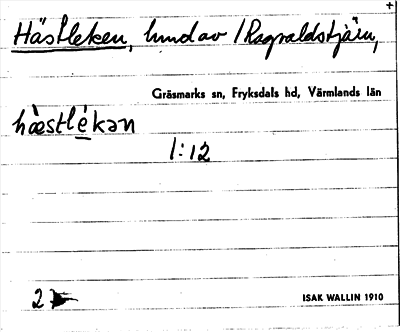 Hästleken, hund av /Ragvaldstjärn,
Gräsmarks sn, Fryksdals hd, Värmlands län
hὰstlékən
1:12
2
ISAK WALLIN 1910
+